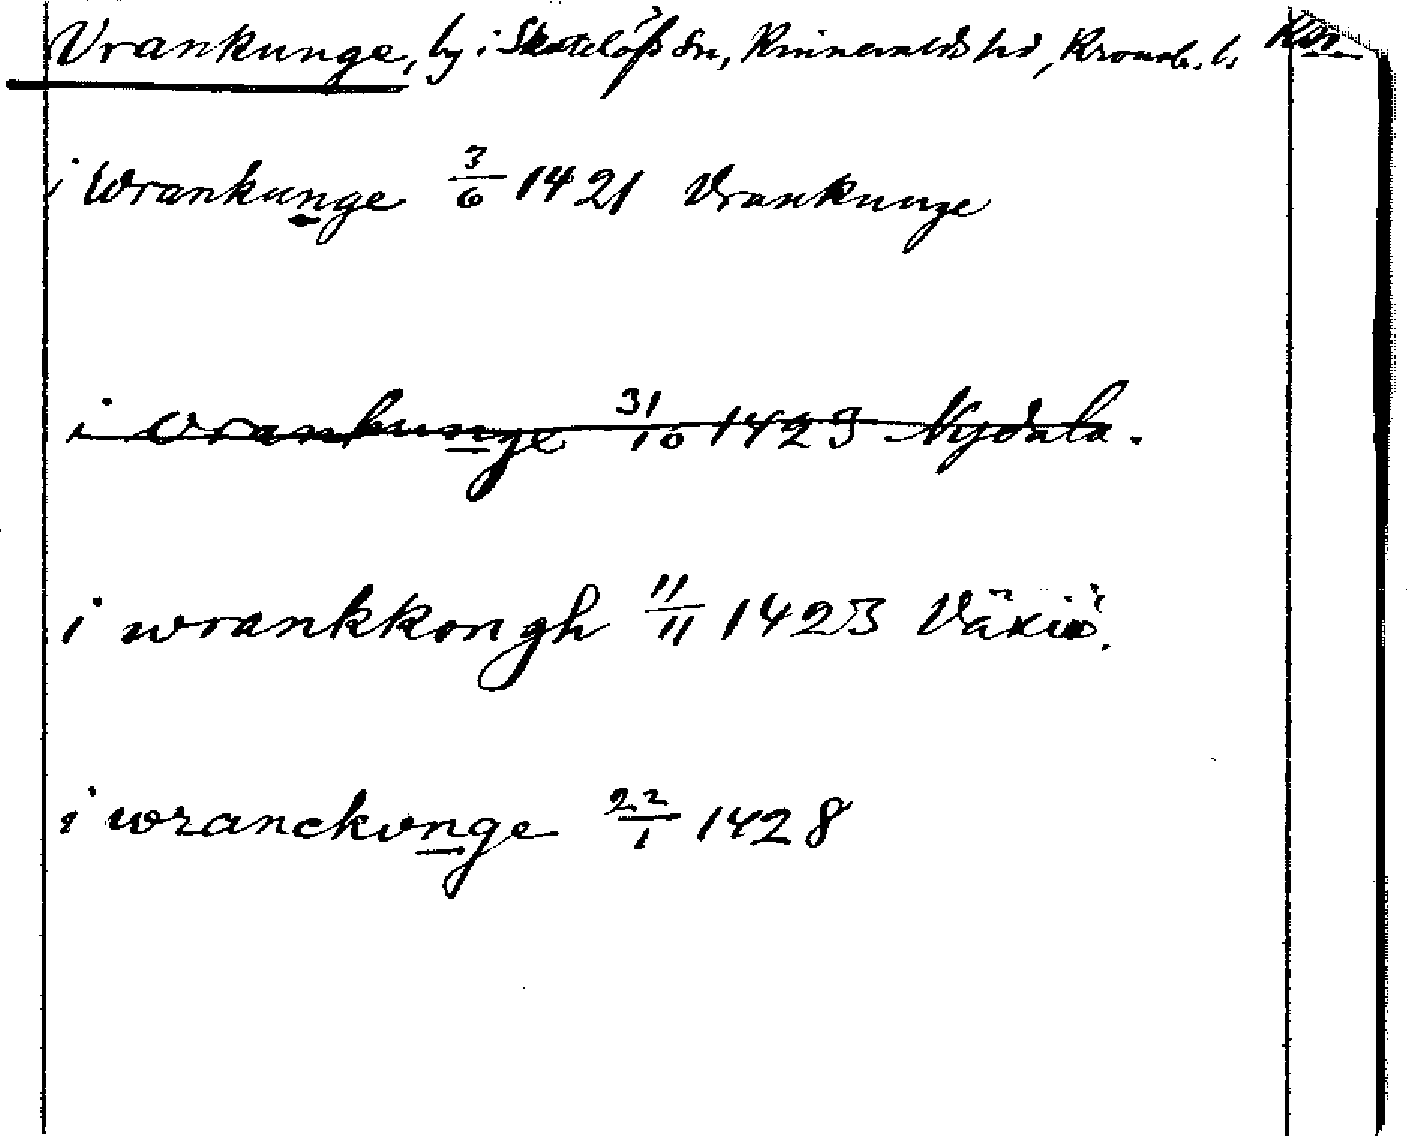 Vrankunge, by i Skatelöfs Sn, Kinnevalds hd, Kronob. l.
i Wrankunge 3/6 1421 Vrankunge
i vrankunge 31/10 1423 Nydala.
i wrankkongh 11/11 1423 Växiö.
i wranckvnge 22/1 1428